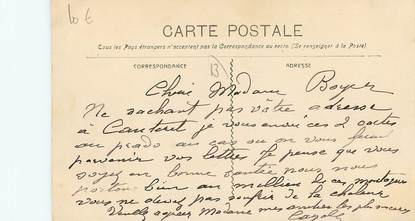 10 €
CARTE POSTALE
Tous les Pays étrangers n'acceptent pas la Correspondance au recto (Se renseigner à la Poste)
CORRESPONDANCE
ADRESSE
Chère Madame Boyer
Ne sachant pas vôtre adresse
à je vous envoi ces 2 cartes
au prado au cas ou on vous
parvenir vos lettres Je pense que vous
soyez en bonne santée nous nous
portons bien au millieu de ces montagnes
vous ne devez pas soufrir de la chaleur
Veuillez agréer Madame mes amitiés les plus